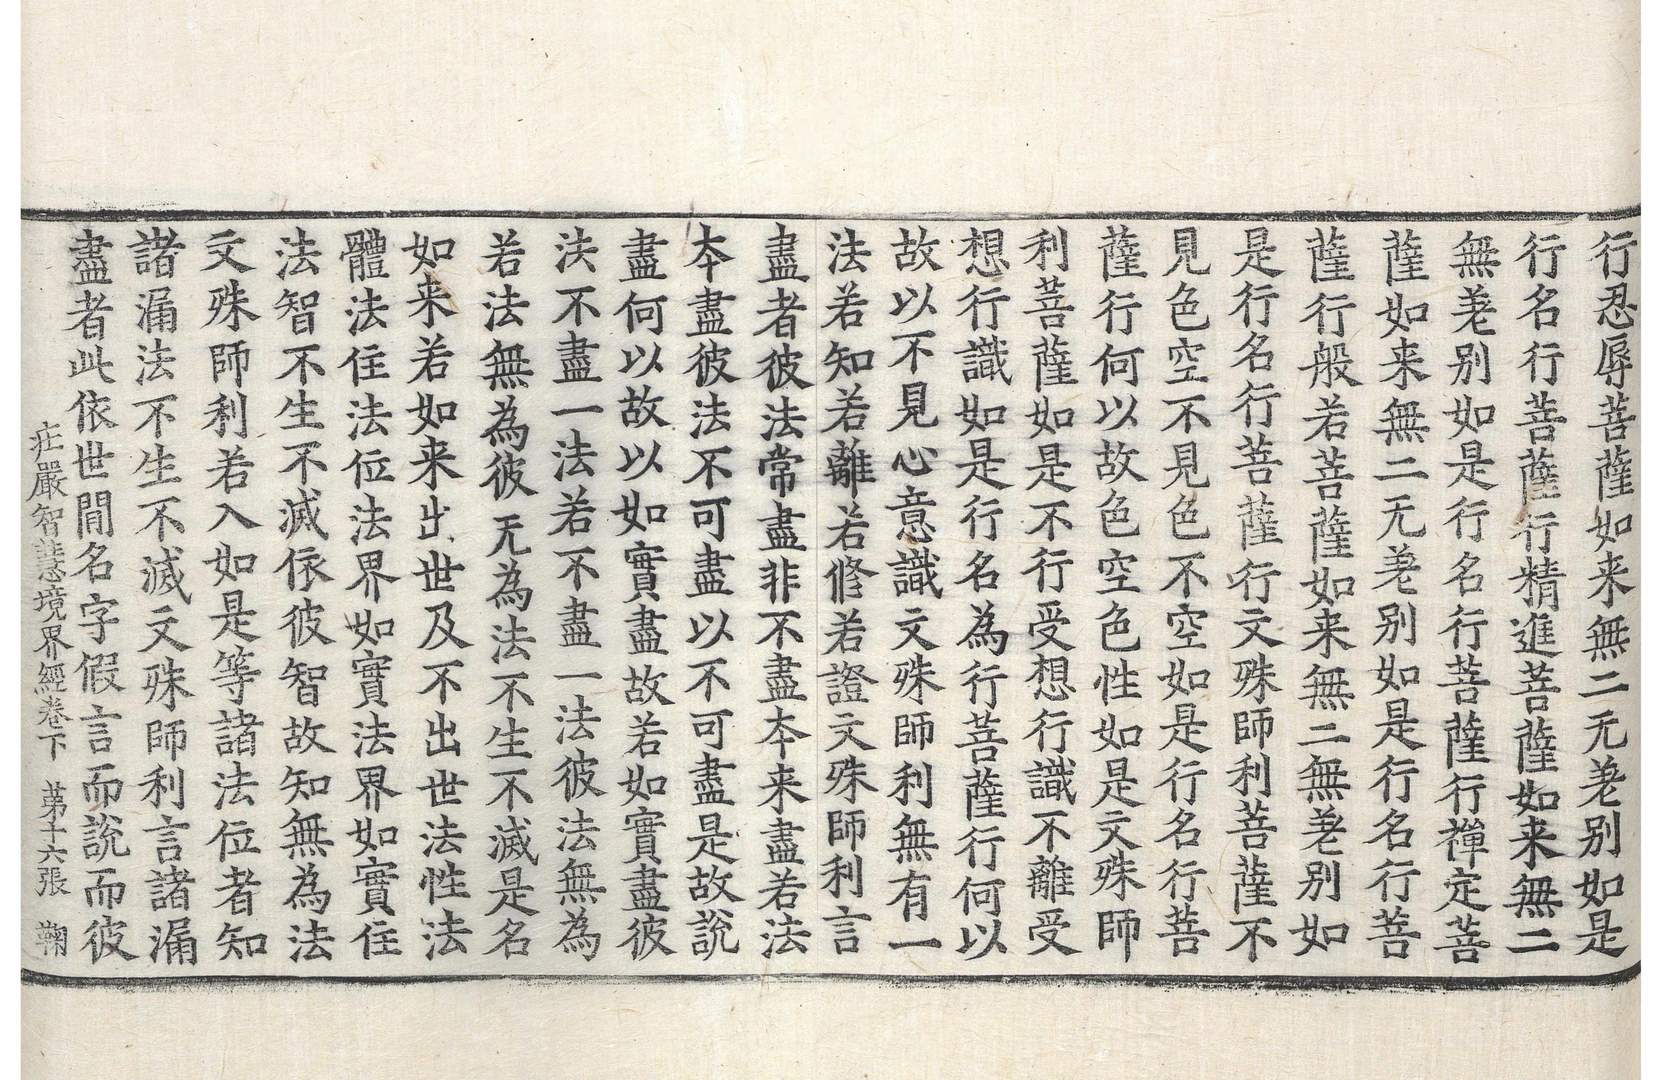 行忍辱菩薩如来無二无差别如是
行名行菩薩行精進菩薩如来無二
無差别如是行名行菩薩行禪定菩
薩如来無二无差别如是行名行菩
薩行般若菩薩如来無二無差别如
是行名行菩薩行文殊師利菩薩不
見色空不見色不空如是行名行菩
薩行何以故色空色性如是文殊師
利菩薩如是不行受想行識不離受
想行識如是行名為行菩薩行何以
故以不見心意識文殊師利無有一
法若知若離若修若證文殊師利言
盡者彼法常盡非不盡本来盡若法
本盡彼法不可盡以不可盡是故說
盡何以故以如實盡故若如實盡彼
法不盡一法若不盡一法彼法無為
若法無為彼无為法不生不滅是名
如来若如来出世及不出世法性法
體法住法位法界如實法界如實住
法智不生不滅依彼智故知無為法
文殊師利若入如是等諸法位者知
諸漏法不生不滅文殊師利言諸漏
盡者此依世間名字假言而說而彼
庄嚴智慧境界經卷下 苐十六張 鞠